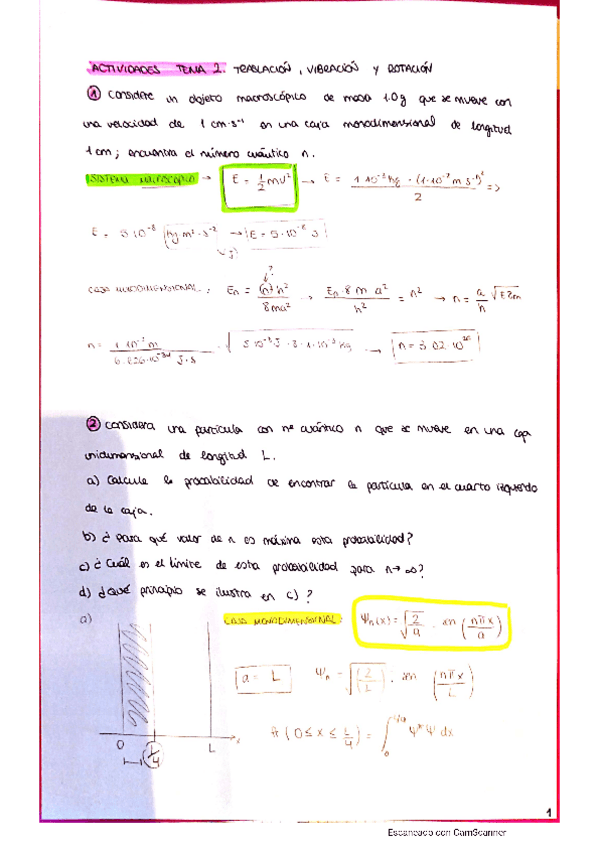 ACTIVIDADES TEMA 2. TRASLACIÓN, VIBRACIÓN Y ROTACIÓN
① Considere un objeto macroscópico de masa 1.0g que se mueve con
una velocidad de 1 cm·s⁻¹ en una caja monodimensional de longitud
1cm; encuentra el número cuántico n.
SISTEMA MACROSCÓPICO → E = 1/2 mv² → E = 1·10⁻³ kg · (1·10⁻² m s⁻¹)² / 2 =>
E = 5·10⁻⁸ kg m² s⁻² → E = 5·10⁻⁸ J
(J)
?
CAJA MONODIMENSIONAL: En = n² h² / 8ma² → En·8 m a² / h² = n² → n = a/h √E8m
n = 1·10⁻² m / 6.626·10⁻³⁴ J·s · √5·10⁻⁸ J · 8·1·10⁻³ kg → n = 3.02·10²⁶
② Considera una partícula con nº cuántico n que se mueve en una caja
unidimensional de longitud L.
a) Calcule la probabilidad de encontrar la partícula en el cuarto izquierdo
de la caja.
b) ¿Para qué valor de n es máxima esta probabilidad?
c) ¿Cuál es el límite de esta probabilidad para n→∞?
d) ¿Qué principio se ilustra en c)?
a)
CAJA MONODIMENSIONAL: Ψn(x) = √2/a · sen (nπx/a)
a = L Ψn = √(2/L) · sen (nπx/L)
0 L/4 L x
(0 ≤ x ≤ L/4) = ∫₀^L/4 Ψ*Ψ dx
1
Escaneado con CamScanner